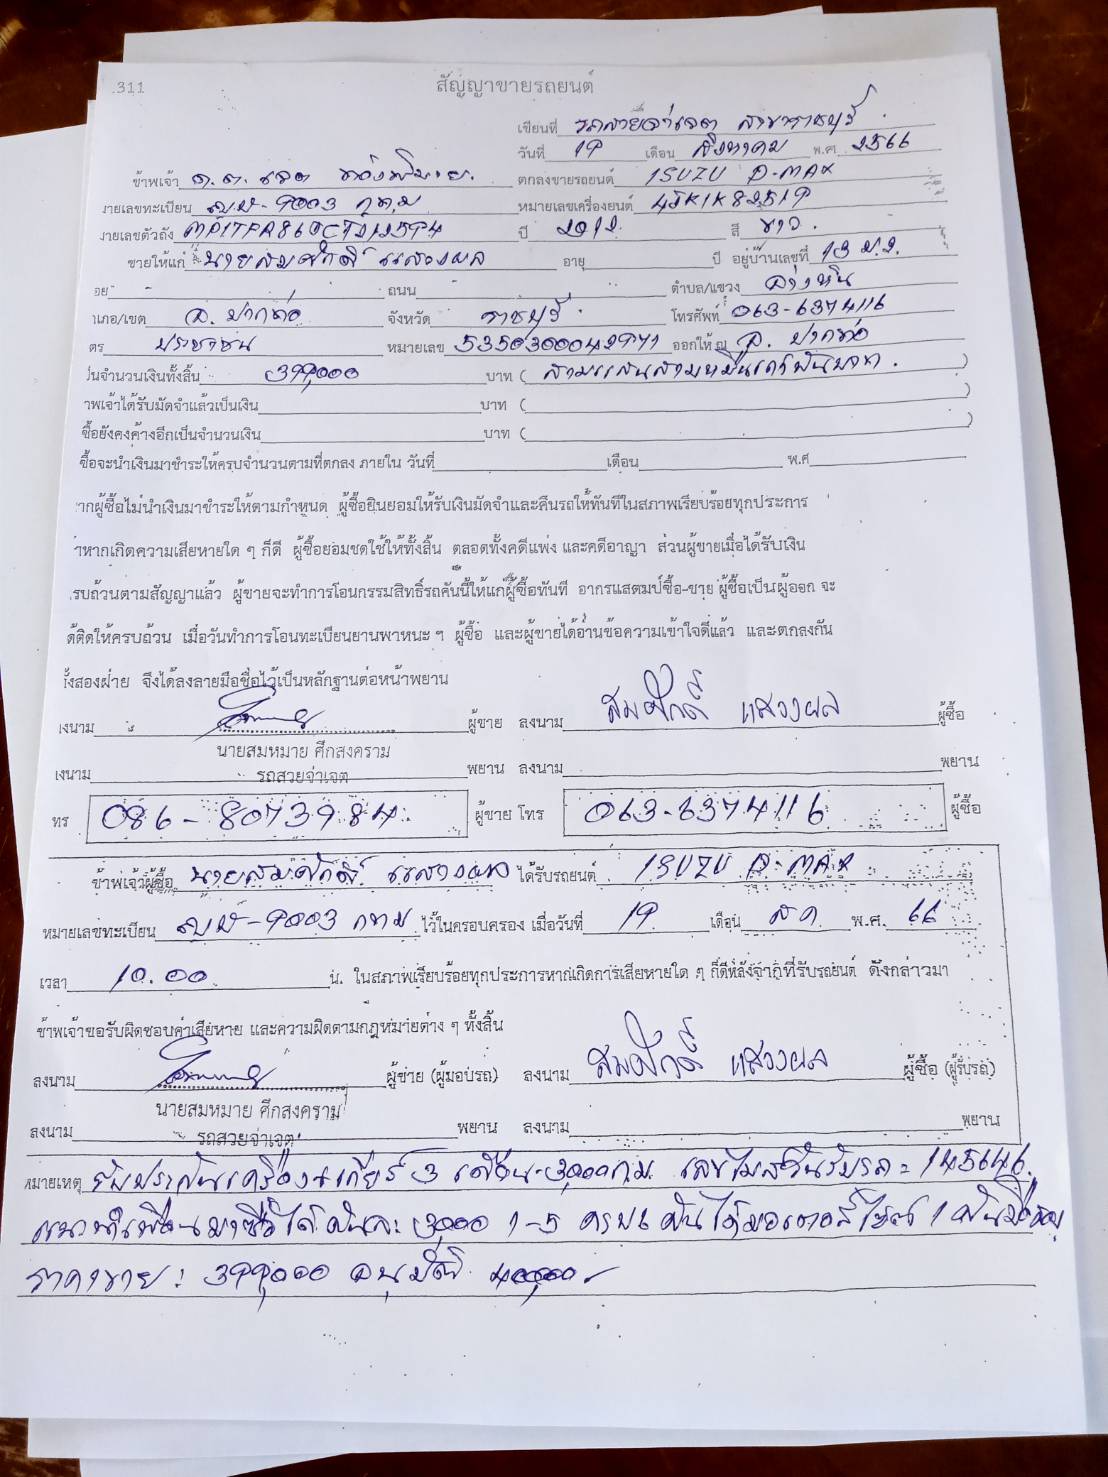 .311 สัญญาขายรถยนต์
เขียนที่ รถสวยจ่าเจต สาขาราชบุรี
วันที่ 19 เดือน สิงหาคม พ.ศ. 2566
ข้าพเจ้า ด.ต. เจต ตกลงขายรถยนต์ ISUZU D-MAX
ายเลขทะเบียน 9003 กทม หมายเลขเครื่องยนต์ 4JK1K82519
ายเลขตัวถัง ปี 2012 สี ขาว
ขายให้แก่ นายสมศักดิ์ แสวงผล อายุ ปี อยู่บ้านเลขที่ 13 ม.2
อย ถนน ตำบล/แขวง อ่างหิน
าเภอ/เขต อ. ปากท่อ จังหวัด ราชบุรี โทรศัพท์ 063-6374116
ตร ประชาชน หมายเลข ออกให้ ณ อ. ปากท่อ
นจำนวนเงินทั้งสิ้น 399,000 บาท ( )
าพเจ้าได้รับมัดจำแล้วเป็นเงิน บาท ( )
ซื้อยังคงค้างอีกเป็นจำนวนเงิน บาท ( )
ซื้อจะนำเงินมาชำระให้ครบจำนวนตามที่ตกลง ภายใน วันที่ เดือน พ.ศ
ากผู้ซื้อไม่นำเงินมาชำระให้ตามกำหนด ผู้ซื้อยินยอมให้รับเงินมัดจำและคืนรถให้ทันทีในสภาพเรียบร้อยทุกประการ
าหากเกิดความเสียหายใด ๆ ก็ดี ผู้ซื้อยอมชดใช้ให้ทั้งสิ้น ตลอดทั้งคดีแพ่ง และคดีอาญา ส่วนผู้ขายเมื่อได้รับเงิน
รบถ้วนตามสัญญาแล้ว ผู้ขายจะทำการโอนกรรมสิทธิ์รถคันนี้ให้แก่ผู้ซื้อทันที อากรแสตมป์ซื้อ-ขาย ผู้ซื้อเป็นผู้ออก จะ
ต้ติดให้ครบถ้วน เมื่อวันทำการโอนทะเบียนยานพาหนะ ฯ ผู้ซื้อ และผู้ขายได้อ่านข้อความเข้าใจดีแล้ว และตกลงกัน
ั้งสองฝ่าย จึงได้ลงลายมือชื่อไว้เป็นหลักฐานต่อหน้าพยาน
งนาม ผู้ขาย ลงนาม สมศักดิ์ แสวงผล ผู้ซื้อ
นายสมหมาย ศึกสงคราม
งนาม รถสวยจ่าเจต พยาน ลงนาม พยาน
ทร 086-8073984 ผู้ขาย โทร 063-6374116 ผู้ซื้อ
ข้าพเจ้าผู้ซื้อ นายสมศักดิ์ แสวงผล ได้รับรถยนต์ ISUZU D-MAX
หมายเลขทะเบียน 9003 กทม ไว้ในครอบครอง เมื่อวันที่ 19 เดือน ส.ค. พ.ศ. 66
เวลา 10.00 น. ในสภาพเรียบร้อยทุกประการหากเกิดการเสียหายใด ๆ ก็ดีหลังจากที่รับรถยนต์ ดังกล่าวมา
ข้าพเจ้าขอรับผิดชอบค่าเสียหาย และความผิดตามกฎหมายต่าง ๆ ทั้งสิ้น
ลงนาม ผู้ขาย (ผู้มอบรถ) ลงนาม สมศักดิ์ แสวงผล ผู้ซื้อ (ผู้รับรถ)
นายสมหมาย ศึกสงคราม
ลงนาม รถสวยจ่าเจต พยาน ลงนาม พยาน
หมายเหตุ รับประกันเครื่อง+เกียร์ 3 เดือน 3,000 กม. เลขไมล์วันรับรถ = 145646
แนะนำเพื่อนมาซื้อได้คันละ 3,000 1-5 ครบ 5 คันได้มอเตอร์ไซค์ 1 คัน
ราคาขาย : 399,000 อนุมัติ